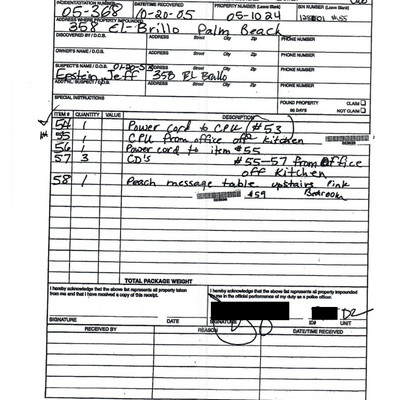 INCIDENT/CITATION NUMBER DATE/TIME RECOVERED PROPERTY NUMBER (Leave Blank) BIN NUMBER (Leave Blank)
05-368 10-20-05 05-1024
ADDRESS WHERE PROPERTY IMPOUNDED
358 El-Brillo Palm Beach
DISCOVERED BY / D.O.B. ADDRESS Street City Zip PHONE NUMBER
OWNER'S NAME / D.O.B. ADDRESS Street City Zip PHONE NUMBER
SUSPECT'S NAME / D.O.B. ADDRESS Street City Zip PHONE NUMBER
Epstein, Jeff 358 El Brillo
ADDRESS Street City Zip PHONE NUMBER
SPECIAL INSTRUCTIONS
FOUND PROPERTY CLAIM
90 DAYS NOT CLAIM
ITEM # QUANTITY VALUE DESCRIPTION
54 1 Power cord to CPU (#53)
55 1 CPU from office off kitchen
56 1 Power cord to item #55
57 3 CD's #55-57 from office
off Kitchen
58 1 message table upstairs Pink
#59 Bedroom
TOTAL PACKAGE WEIGHT
I hereby acknowledge that the above list represents all property taken
from me and that I have received a copy of this receipt.
I hereby acknowledge that the above list represents all property impounded
by me in the official performance of my duty as a police officer.
SIGNATURE DATE SIGNATURE ID# UNIT
RECEIVED BY REASON DATE/TIME RECEIVED